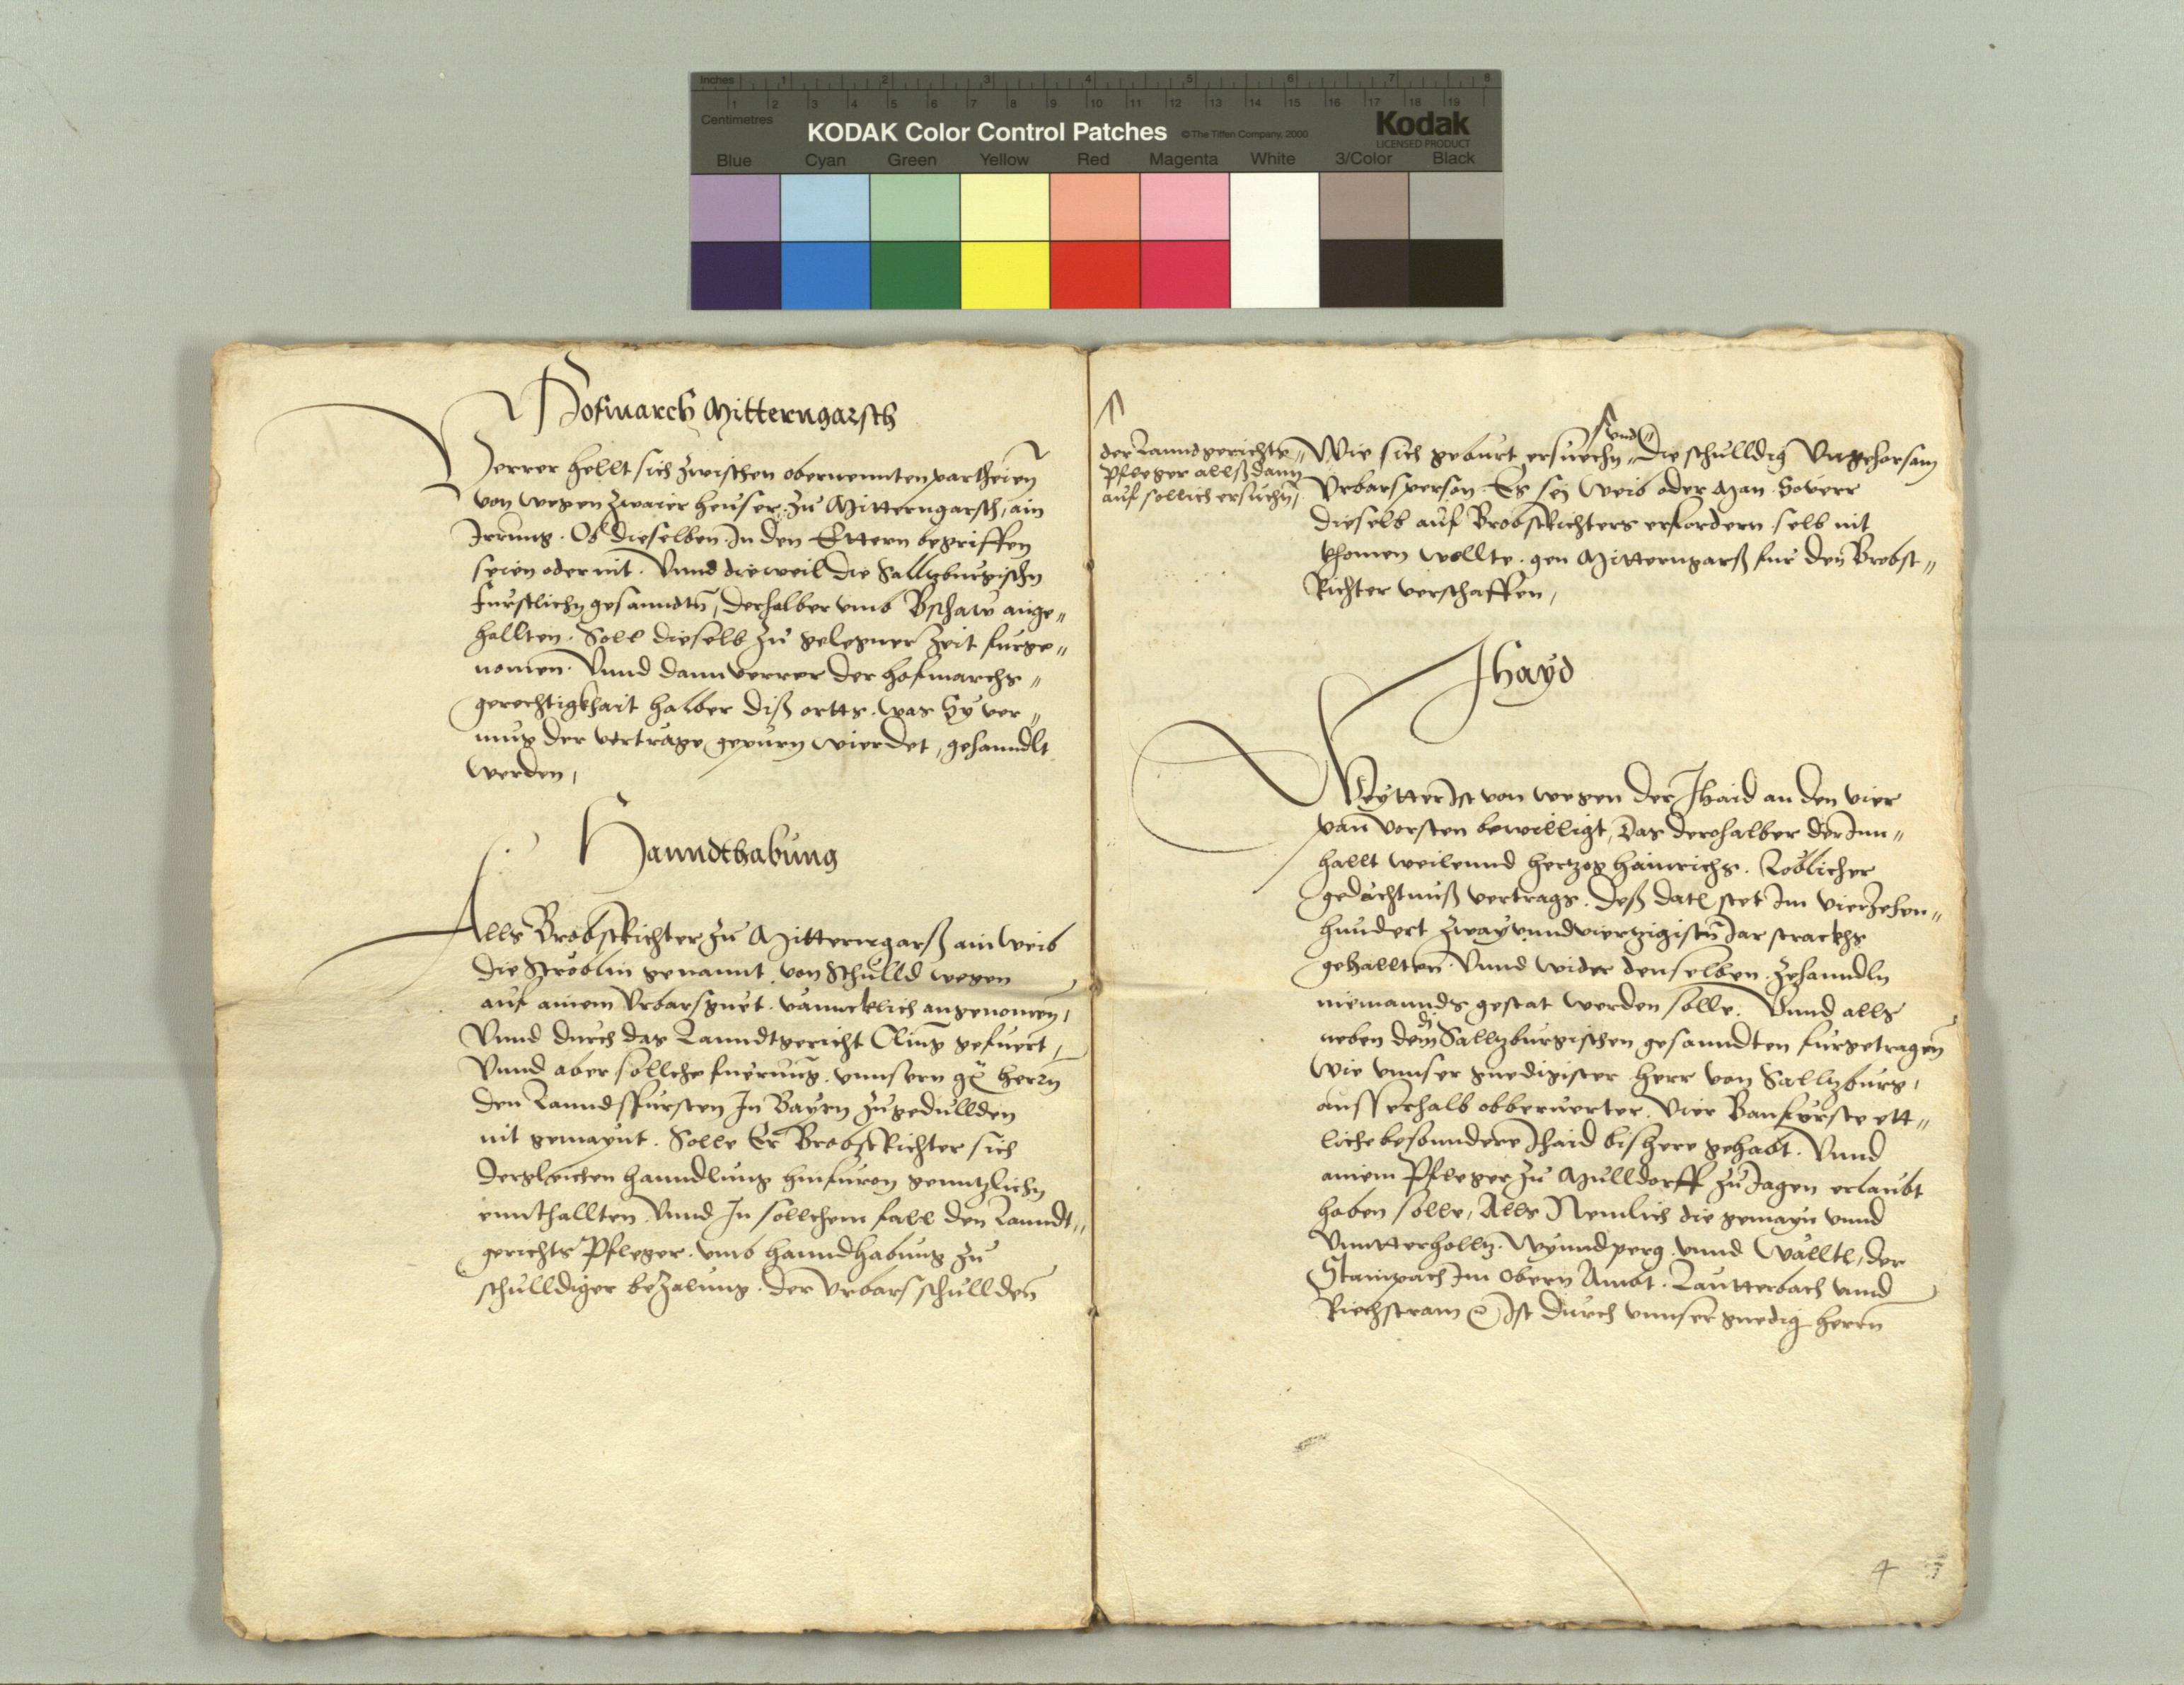 Inches 1 2 3 4 5 6 7 8
Centimetres 1 2 3 4 5 6 7 8 9 10 11 12 13 14 15 16 17 18 19
KODAK Color Control Patches © The Tiffen Company, 2000 Kodak
LICENSED PRODUCT
Blue Cyan Green Yellow Red Magenta White 3/Color Black
Hofmarch Mitterngarsch
Verrer hellt sich zwischen obernennten partheien
von wegen zwaier heuser zu Mitterngarsch, ain
Irrung. Ob dieselben In den Ettern begriffen
seien oder nit. Vnnd dieweil die Sallzburgischn
furstlichn gesanndtn, derhalber vmb Bschaw ange„
hallten. Soll dieselb zu gelegner Zeit furge„
nomen. Vnnd dann verrer der hofmarchs„
gerechtigkhait halber diß ortts. was Sy ver„
mug der vertrage gepurn wierdet, gehanndlt
werden,
Hanndthabung
Alls Brobstrichter zu Mitterngarß ain weib
die Ströblin genannt von Schulld wegen
auf ainem Vrbarsguet. vannckhlich angenomen,
Vnnd durch das Lanndtgericht Cling gefuert,
Vnnd aber sollche fuerung. vnnsern herrn
den Lanndsfursten In Bayrn zugedullden
nit gemaynt. Solle Er Brobstrichter sich
dergleichen hanndlung hinfuron genntzlichn
ennthallten. Vnnd In sollchem fall den Lanndt„
gerichts Pfleger. vmb hanndhabung zu
schulldiger bezalung. der Vrbars schullden
der Lanndgerichts„
Pfleger allßdann
auf sollich ersuchn,
vnd
Wie sich geburt ersuechn„ die schulldig Vngehorsam
Vrbarsperson. Es sej Weib oder Man. Soverr
dieselb auf Brobstrichters erfordern selb nit
khomen wollte. gen Mitterngarß fur den Brobst„
Richter verschaffen,
Jhayd
Weytter Ist von wegen der Jhaid an den vier
pan vorsten bewilligt, Das derohalber der Inn„
hallt weilennd hertzog hainrichs. Loblicher
gedächtnuß vertrags. Deß datl stet Im vierzehen„
hundert zwayvnndvierzigistn Jar strackhs
gehallten. Vnnd wider denselben zehanndln
niemannds gestat werden solle. Vnnd alls
neben dem Sallzburgischen gesanndten furgetragen
wie vnnser gnedigister herr von Sallzburg,
ausserhalb obberuerter Vier Banforste ett„
liche besonndere Jhaid bishere gehabt. Vnnd
ainem Pfleger zu Mulldorff zu Jagen erlaubt
haben solle, Alls Nemlich die gemayn vnnd
Vnntterhollz. Wynndperg. vnnd Walltl, der
Stampach Im Obern Ambt. Lautterbach vnnd
Ist durch vnnser gnedig herrn
4